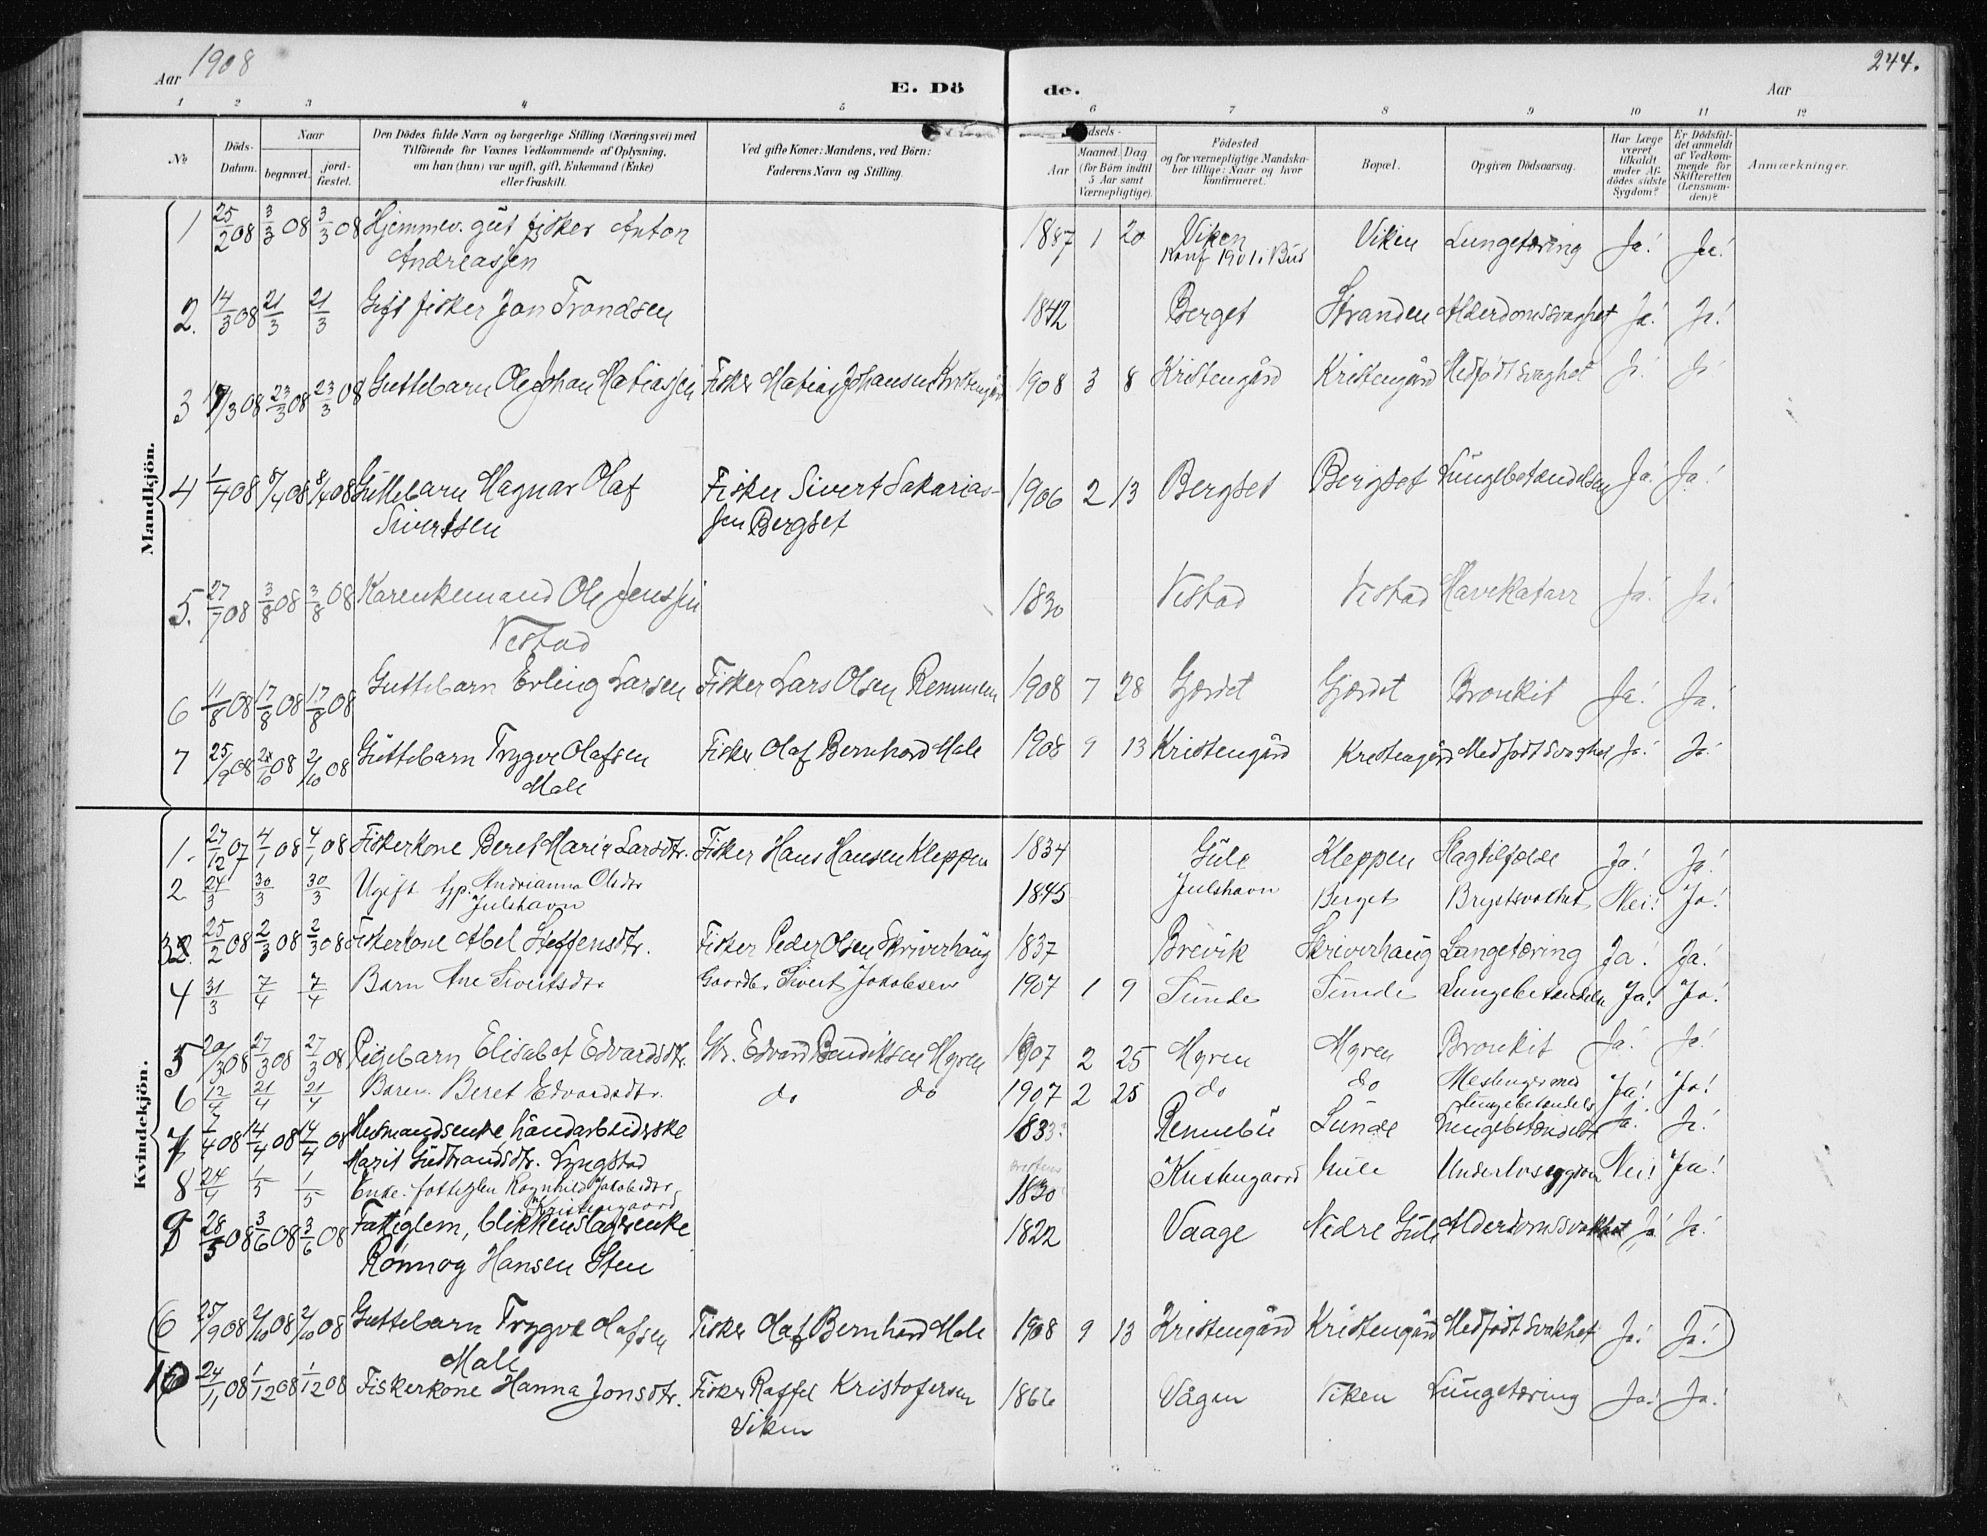 Aar 1908
E. Dö de.
Aar
244.
1 2 3 4 5 6 7 8 9 10 11 12
No
Döds-Datum.
Naar
begravet.
jord-fæstet.
Den Dödes fulde Navn og borgerlige Stilling (Næringsvei) med
Tilföiende for Voxnes Vedkommende af Oplysning,
om han (hun) var ugift, gift, Enkemand (Enke)
eller fraskilt.
Ved gifte Koner: Mandens, ved Börn:
Faderens Navn og Stilling.
Aar
Maaned Dag
(for Börn indtil
5 Aar samt
Værnepligtige).
Födested
og for værnepligtige Mandska-
ber tillige: Naar og hvor
konfirmeret.
Bopæl.
Opgiven Dödsaarsag.
Har Læge
været
tilkaldt
under Af-
dödes sidste
Sygdom?
Er Dödsfal-
det anmeldt
af Vedkom-
mende for
Skifteretten
(Lensman-
den)?
Anmærkninger.
Mandkjön.
1 25/2 08 3/3 08 3/3 08 Hjemmev. gut fisker Anton 1887 1 20 Viken Viken Lungetæring Ja! Ja!
Andreassen Konf 1901 i Bud
2. 14/3 08 21/3 21/3 Gift fisker Jon Trondsen 1842 Berget Stranden Alderdomssvaghet Ja! Ja!
3 17/3 08 23/3 08 23/3 08 Guttebarn Ole Johan Matiassen Fisker Matias Johansen Kristengård 1908 3 8 Kristengård Kristengård Medfødt svaghet Ja! Ja!
4 1/4 08 8/4 08 8/4 08 Guttebarn Magnar Olaf Fisker Sivert Sakarias- 1906 2 13 Bergset Bergset Lungebetændelsen Ja! Ja!
Sivertsen sen Bergset
5. 27/7 08 3/8 08 3/8 08 Kårenkemand Ole Jenssen 1830 Vestad Vestad Mavekatarr Ja! Ja!
Vestad
6 11/8 08 17/8 08 17/8 08 Guttebarn Erling Larsen Fisker Lars Olsen Remmem 1908 7 28 Gjerdet Gjerdet Bronkit Ja! Ja!
7 25/9 08 2/10 08 2/10 08 Guttebarn Trygve Olafsen Fisker Olaf Bernhard Male 1908 9 13 Kristengård Kristengård Medfødt svaghet Ja! Ja!
Male
Kvindekjön.
1. 27/12 07 4/1 08 4/1 08 Fiskerkone Beret Marie Larsdtr. Fisker Hans Hansen Kleppen 1834 Gule Kleppen Slagtilfælde Ja! Ja!
2 24/3 30/3 30/3 Ugift Andrianna Olsdtr 1845 Julshavn Berget Brystsvakhet Nei! Ja!
Julshavn
3 25/2 08 2/3 08 2/3 08 Fiskerkone Abel Steffensdtr. Fisker Peder Olsen Skriverhaug 1837 Brevik Skriverhaug Lungetæring Ja! Ja!
4 31/3 7/4 7/4 Barn Ane Sivertsdtr Gaardbr. Sivert Jakobsen 1907 1 9 Sunde Sunde Lungebetændels Ja! Ja!
5 20/3 08 27/3 08 27/3 08 Pigebarn Elisabet Edvardsdtr. Gbr. Edvard Bendiksen Myren 1907 2 25 Myren Myren Bronkit Ja! Ja!
6 12/4 21/4 21/4 Barn Beret Edvardsdtr. do do 1907 2 25 do do Meslinger med Ja! Ja!
lungebetændels
7 7/4 08 14/4 08 14/4 08 Husmandsenke håndarbeiderske 1833 Rennebu Sunde Lungebetændelse Ja! Ja!
Marit Gudbrandsdtr. Lyngstad
8 24/4 1/5 1/5 Enke. fattiglem Ragnhild Jakobsdtr 1830 Kristengaard Gule Nei! Ja!
Kristengaard
9 28/5 08 3/6 08 3/6 08 Fattiglem, blikkenslagerenke 1822 Vaage Nedre Gule Alderdomssvakhet Ja! Ja!
Rønnog Hansen Sten
(6 25/9 08 2/10 08 2/10 08 Guttebarn Trygve Olafsen Fisker Olaf Bernhard Male 1908 9 13 Kristengård Kristengård Medfødt svakhet Ja! Ja!)
Male
10 24/11 08 1/12 08 1/12 08 Fiskerkone Hanna Jonsdtr. Fisker Raffel Kristofersen 1866 Vågen Viken Lungetæring Ja! Ja!
Viken